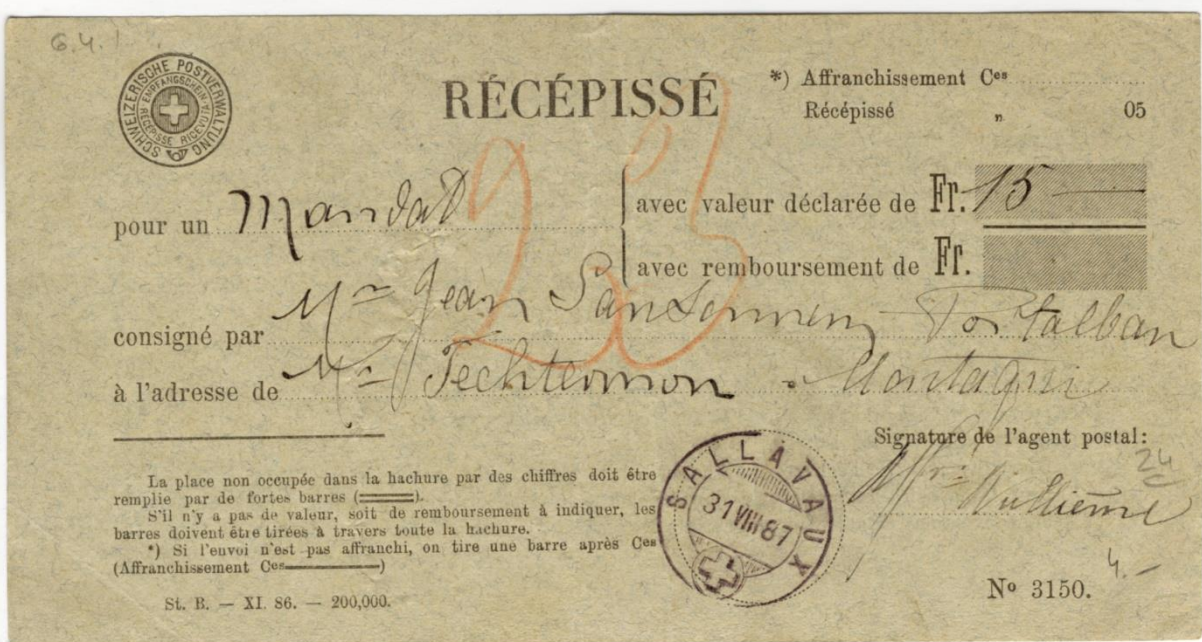 6.4.1
SCHWEIZERISCHE POSTVERWALTUNG
EMPFANGSCHEIN
RÉCÉPISSÉ RICEVUTA
RÉCÉPISSÉ
*) Affranchissement Ces
Récépissé „ 05
23
pour un Mandat
avec valeur déclarée de Fr. 15 —
avec remboursement de Fr.
consigné par Mr Jean Sansonnen Portalban
à l'adresse de Mr Techtermon - Montagni
Signature de l'agent postal:
24
SALLAVAUX
31 VIII 87
La place non occupée dans la hachure par des chiffres doit être
remplie par de fortes barres (═══).
S'il n'y a pas de valeur, soit de remboursement à indiquer, les
barres doivent être tirées à travers toute la hachure.
*) Si l'envoi n'est pas affranchi, on tire une barre après Ces
(Affranchissement Ces———)
St. B. — XI. 86. — 200,000.
4.–
No 3150.